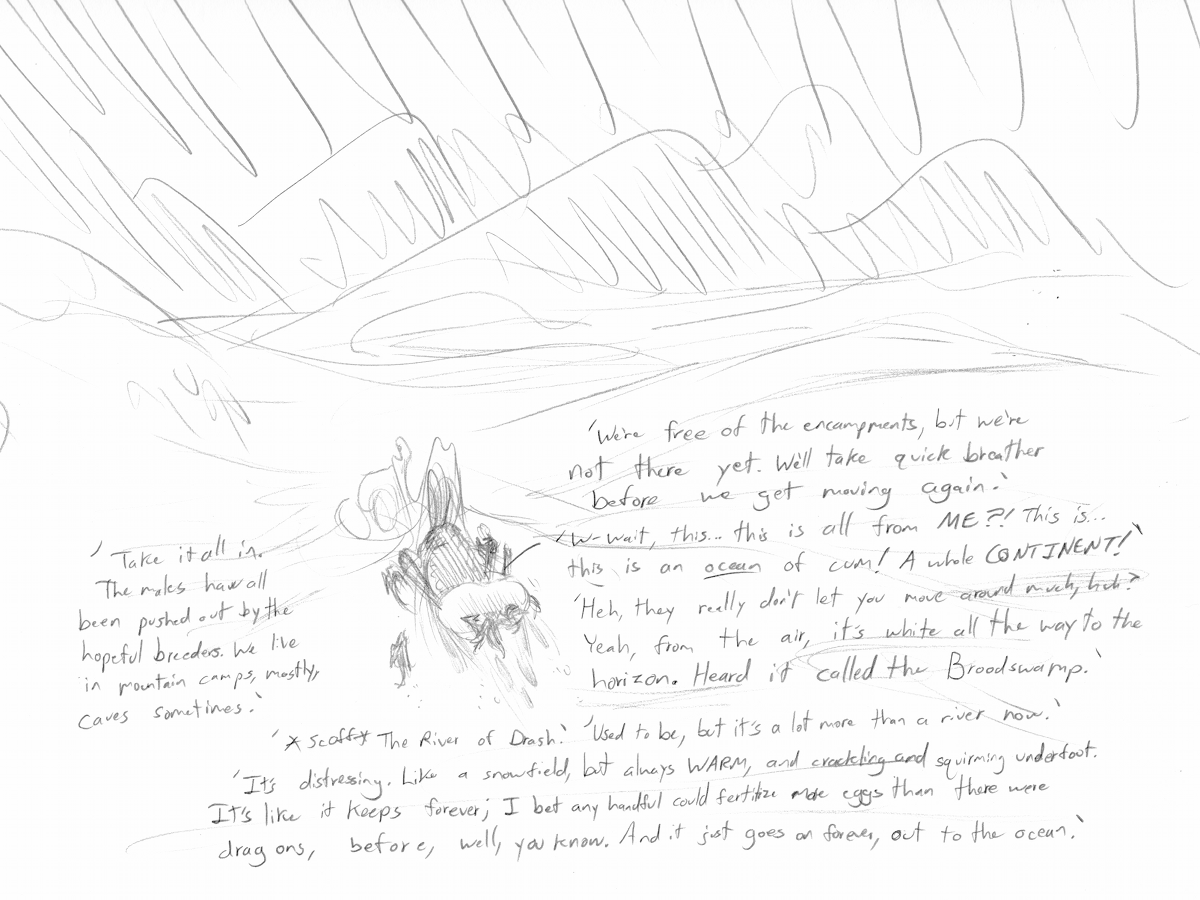 'We're free of the encampments, but we're
not there yet. We'll take quick breather
before we get moving again.'
'W-wait, this... this is all from ME?! This is...
this is an ocean of cum! A whole CONTINENT!'
'Heh, they really don't let you move around much, huh?
Yeah, from the air, it's white all the way to the
horizon. Heard it called the Broodswamp.'
'Take it all in.
The males have all
been pushed out by the
hopeful breeders. We live
in mountain camps, mostly,
caves sometimes.'
'*Scoff* The River of Drash.' 'Used to be, but it's a lot more than a river now.'
'It's distressing. Like a snowfield, but always WARM, and crackling and squirming underfoot.
It's like it keeps forever; I bet any handful could fertilize more eggs than there were
dragons, before, well, you know. And it just goes on forever, out to the ocean.'